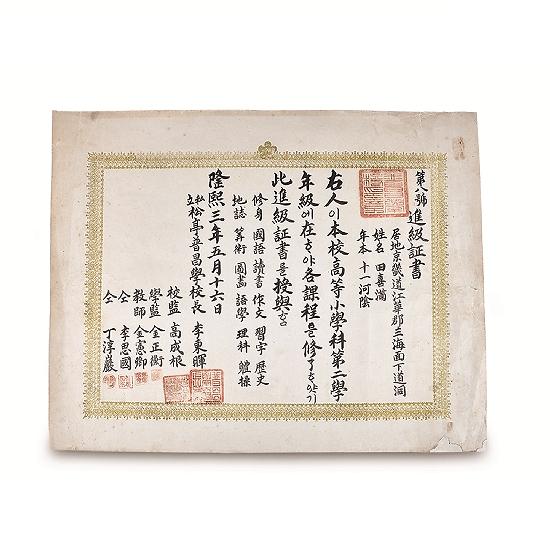 第八號
進級証書
居地京畿道江華郡三海面下道洞
姓名 田喜滿
年本 十一 河陰
右人이本校高等小學科第二學
年級에在ᄒᆞ야各課程을修了ᄒᆞ얏기
此進級証書를授與홈
修身 國語 讀書 作文 習字 歷史
地誌 算術 圖畵 語學 理科 體操
隆熙三年五月十六日
私立松亭普昌學校長 李東暉
校監 高成根
學監 金正衡
敎師 金憲卿
仝 李思國
仝 丁淳嚴